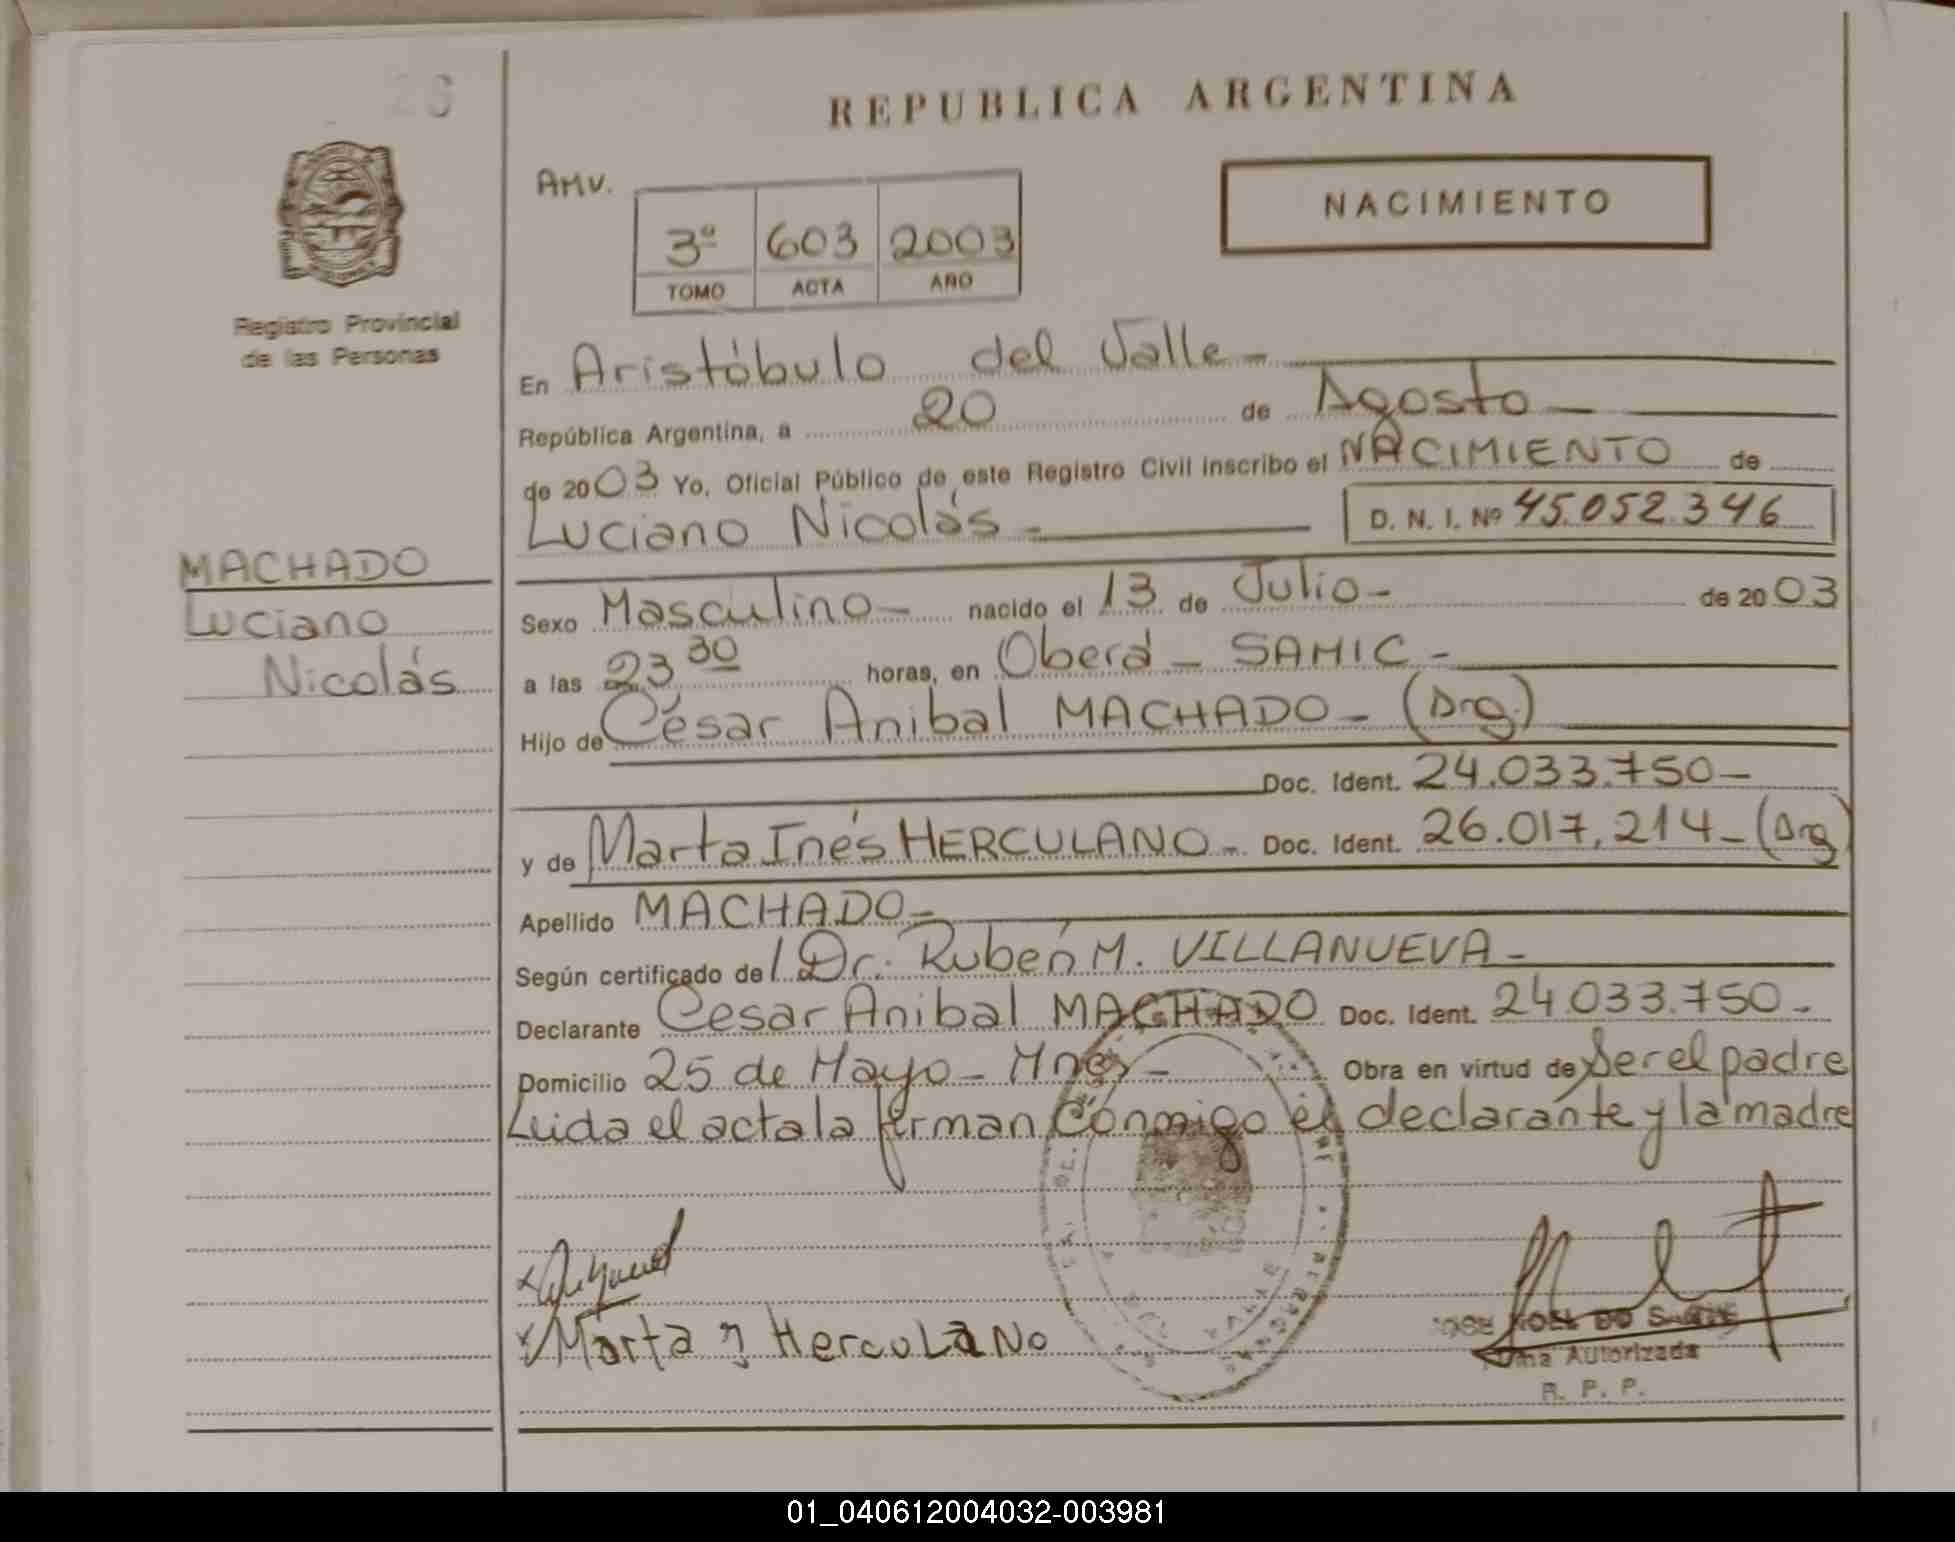 26
REPUBLICA ARGENTINA
AMV.
NACIMIENTO
3º 603 2003
TOMO ACTA AÑO
Registro Provincial
de las Personas
En Aristóbulo del Valle -
República Argentina, a 20 de Agosto -
de 2003 Yo, Oficial Público de este Registro Civil inscribo el NACIMIENTO de
Luciano Nicolás - D. N. I. Nº 45.052.346
MACHADO
Luciano
Nicolás
Sexo Masculino - nacido el 13 de Julio - de 2003
a las 23 30 horas, en Oberá - SAMIC -
Hijo de César Anibal MACHADO - (Arg.)
Doc. Ident. 24.033.750 -
y de Marta Inés HERCULANO - Doc. Ident. 26.017.214 - (Arg)
Apellido MACHADO -
Según certificado del Dr. Rubén M. VILLANUEVA -
Declarante Cesar Anibal MACHADO Doc. Ident. 24.033.750 -
Domicilio 25 de Mayo - Mnes - Obra en virtud de Ser el padre
Luida el acta la firman conmigo el declarante y la madre
Marta I Herculano
JOSE NOEL DO SANTE
Firma Autorizada
R. P. P.
01_040612004032-003981